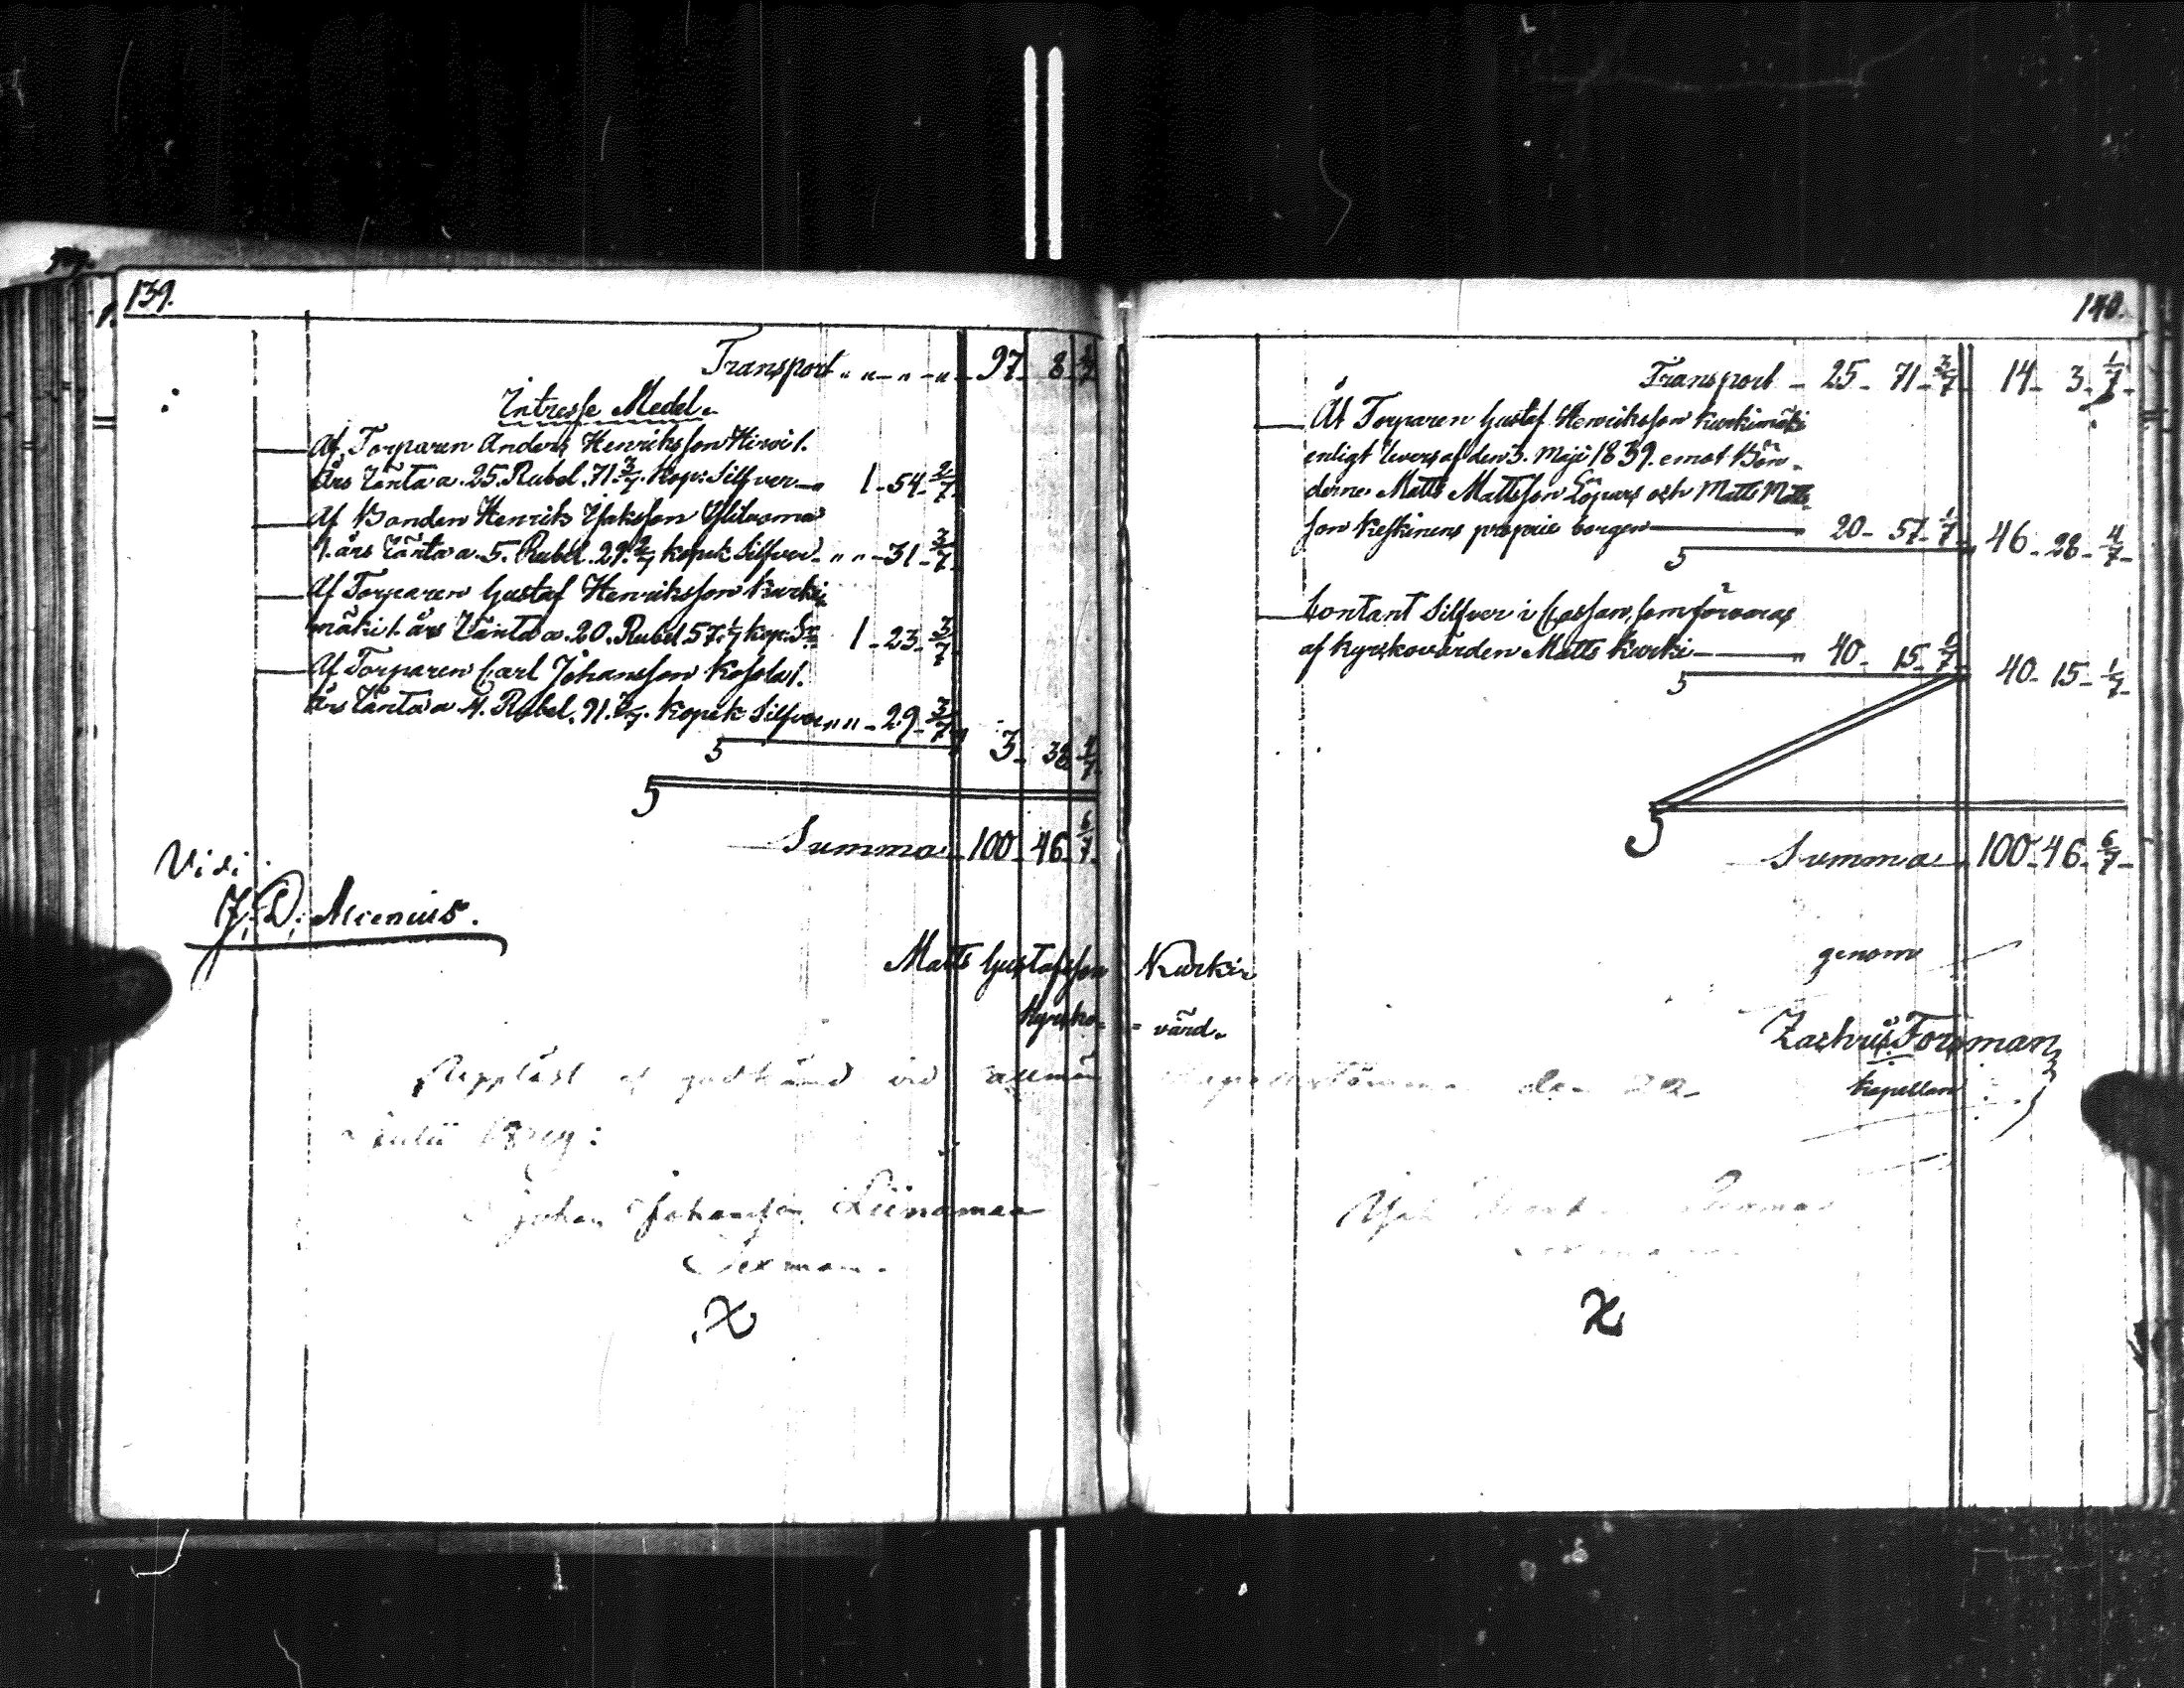 139.
Transport " " " " 97 8 2/7
Intresse Medel.
Af Torparen Anders Henriksson Hirvi 1.
års Ränta a. 25. Rubel. 71 3/7. Kop: Silfver 1 - 54 2/7
Af Bonden Henrik Isaksson
1. års Ränta a. 5. Rubel. 29. 2/7 kopek Silfver " " - 31 3/7
Af Torparen Gustaf Henriksson Kurki-
mäki 1. års Ränta a. 20. Rubel 57. 1/7 kop: Sr 1 - 23 3/7
Af Torparen Carl Johansson Kossola 1.
års Ränta a 4. Rubel. 91. 3/7. Kopek Silfver " " - 29 3/7
3 - 38 4/7
Summa 100 - 46 6/7
Vidi
J. D. Alcenius.
Matts Gustafsson Kurki
Kyrko- = värd.
Uppläst och godkänd vid allmän den 22
Julii
Johan Johansson Liinamaa
Sexman.
X
140.
Transport - 25 - 71 - 3/7 14 - 3 - 1/7
Åt Torparen Gustaf Henriksson Kurkimäki
enligt Revers af den 3. Maji 1839. emot Bön-
derne Matts Mattsson Lopars och Matts Matts-
son Keskinens proprie borgen 20 - 57 - 1/7 46 - 28 - 4/7
Contant Silfver i Cassan, som förvaras
af Kyrkovärden Matts Kurki 40 - 15 - 1/7 40 - 15 - 1/7
Summa 100 - 46 - 6/7
genom
Zachris Forsman
Kapellan
X